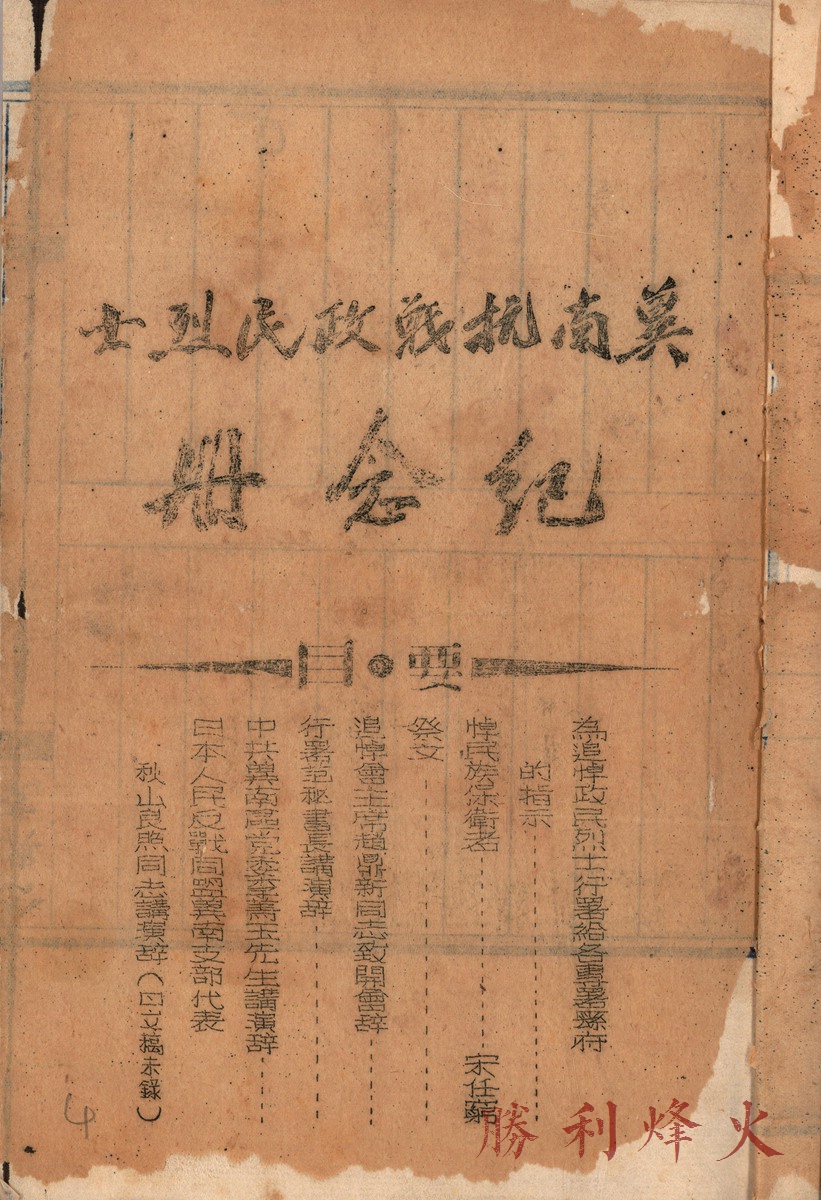 冀南抗战政民烈士
纪念册
要●目
為追悼政民烈士行署給各專署縣府
的指示
悼民族保衛者 宋任窮
祭文
追悼會主席趙鼎新同志致開會辞
行署范秘書長講演辞
中共冀南區党委李菁玉先生講演辞
日本人民反戰同盟冀南支部代表
秋山良照同志講演辞(日文稿未錄)
勝利烽火